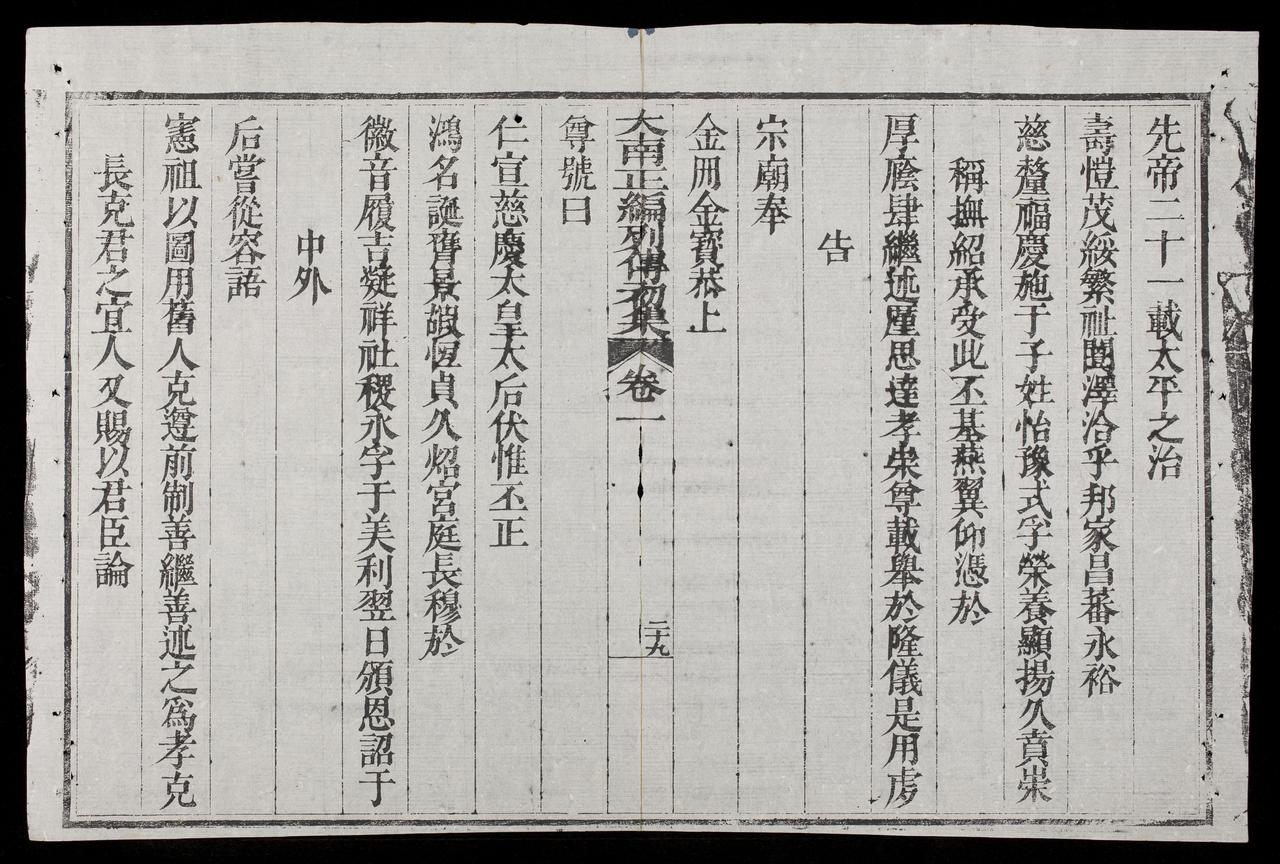 先帝二十一載太平之治
壽愷茂綏繁祉闓澤洽乎邦家昌蕃永裕
慈釐福慶施于子姓怡豫式孚榮養顯揚久賁崇
稱撫紹承受此丕基燕翼仰憑於
厚廕肆繼述廑思達孝崇尊載舉於隆儀是用虔
告
宗廟奉
金冊金寶恭上
大南正編列傳初集 卷一 二十九
尊號曰
仁宣慈慶太皇太后伏惟丕正
鴻名誕膺景嘏恆貞久炤宮庭長穆於
徽音履吉凝祥社稷永孚于美利翌日頒恩詔于
中外
后嘗從容語
憲祖以圖用舊人克遵前制善繼善述之爲孝克
長克君之宜人又賜以君臣論